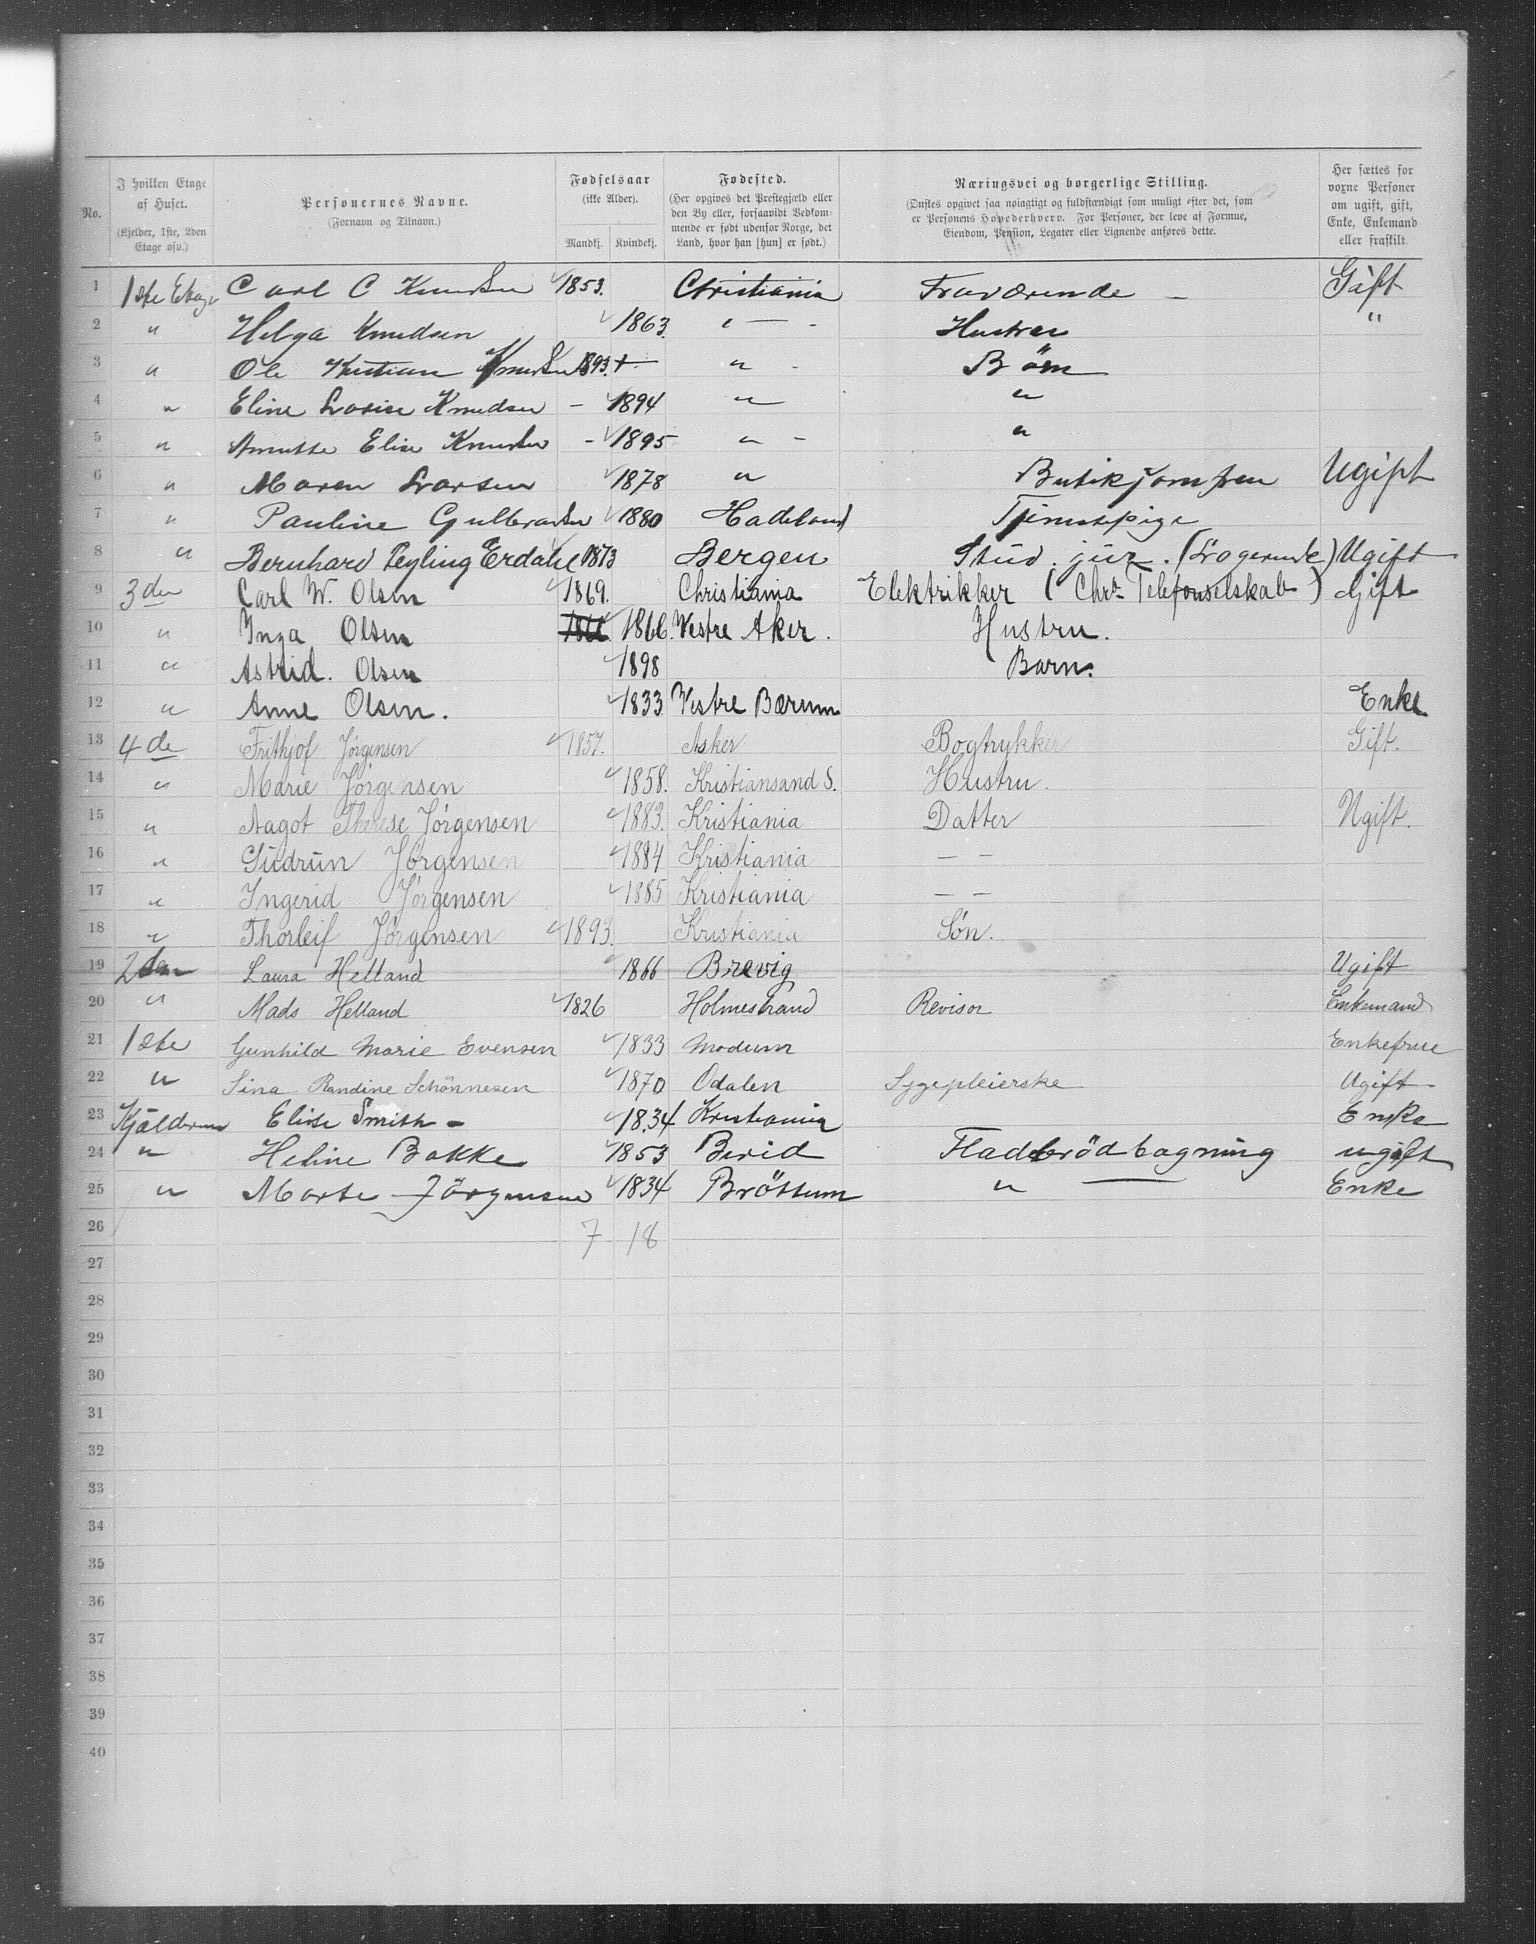 No.
I hvilken Etage af Huset.
(Kjelder, 1ste, 2den Etage osv.)
Personernes Navne.
(Fornavn og Tilnavn.)
Fødselsaar
(ikke Alder).
Mandkj. Kvindekj.
Fødested.
(Her opgives det Prestegjæld eller den By eller, forsaavidt Vedkommende er født udenfor Norge, det Land, hvor han [hun] er født.)
Næringsvei og borgerlige Stilling.
(Ønskes opgivet saa nøiagtigt og fuldstændigt som muligt efter det, som er Personens Hovederhverv. For Personer, der leve af Formue, Eiendom, Pension, Legater eller Lignende anføres dette.
Her sættes for voxne Personer om ugift, gift, Enke, Enkemand eller fraskilt.
1 1ste Etage Carl C Knudsen 1853. Christiania Fraværende — Gift
2 " Helga Knudsen 1863. " — - Hustru "
3 " Ole Kristian Knudsen 1893. " - Börn
4 " Eline Lovise Knudsen - 1894 " "
5 " Annette Elise Knudsen - 1895 " - "
6 " Maren Larsen 1878 " Butikjomfru Ugift
7 " Pauline Gulbrandsen 1880 Hadeland Tjenestepige
8 " Bernhard Teyling Erdahl 1873 Bergen Stud. jur. (Logerende) Ugift
9 3den Carl W. Olsen 1869. Christiania Elektrikker (Chr. Telefonselskab) Gift
10 " Inga Olsen 1866. Vestre Aker. Hustru.
11 " Astrid. Olsen 1898 Barn.
12 " Anne Olsen. 1833 Vestre Bærum Enke
13 4de Frithjof Jørgensen 1857. Asker Bogtrykker Gift.
14 " Marie Jørgensen 1858. Kristiansand S. Hustru.
15 " Aagot Therese Jørgensen 1883. Kristiania Datter Ugift.
16 " Gudrun Jørgensen 1884 Kristiania — —
17 " Ingerid Jørgensen 1885 Kristiania — —
18 " Thorleif Jørgensen 1893. Kristiania Søn.
19 2den Laura Helland 1866 Brevig Ugift
20 " Mads Helland 1826 Holmestrand Revisor Enkemand
21 1ste Gunhild Marie Evensen 1833 Modum Enkefrue
22 " Sina Randine Schönnesen 1870 Odalen Sygepleierske Ugift
23 Kjælderen Elise Smith - 1834 Kristiania Enke
24 " Heline Bakke 1853 Berid Fladbrödbagning ugift
25 " Marte Jörgensen 1834 Bröttum " Enke
26 7 18
27
28
29
30
31
32
33
34
35
36
37
38
39
40